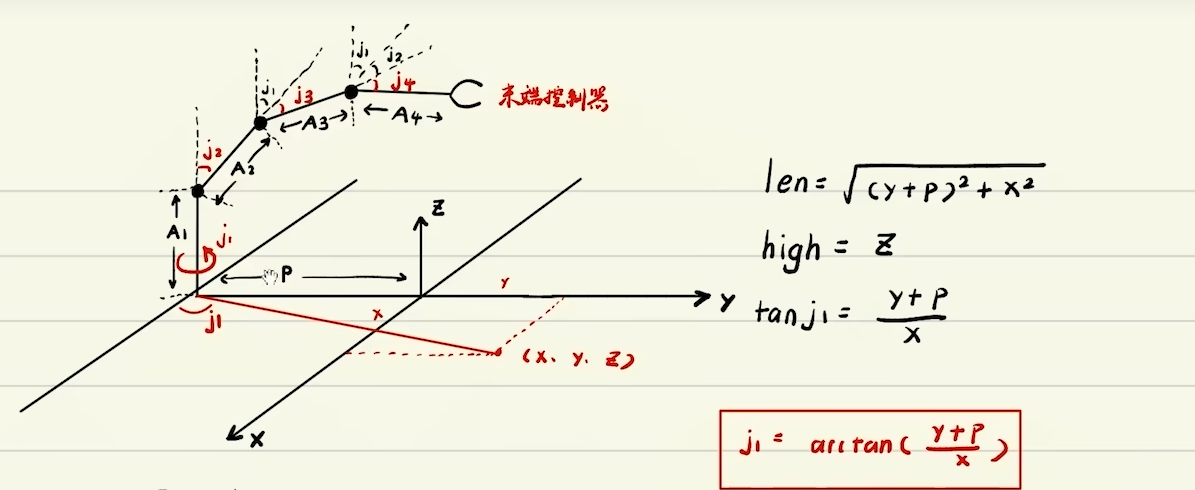 j₁ j₂
j₁ j₃ j₄
←A3→ ←A4→ 末端控制器
j₂
A2
A1 j₁
Z
P
Y
Y
X
j1
(X、Y、Z)
X
len = √(Y+P)² + X²
high = Z
tan j₁ = (Y+P)/X
j₁ = arctan( (Y+P)/X )